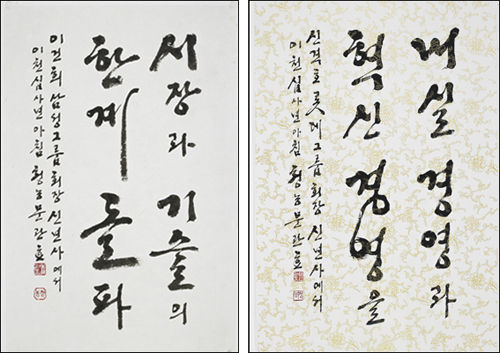 시장과 기술의
한계 돌파
이건희 삼성그룹 회장 신년사에서
이천십사년 아침 청농 문관효
내실 경영과
혁신 경영을
신격호 롯데그룹 회장 신년사에서
이천십사년 아침 청농 문관효